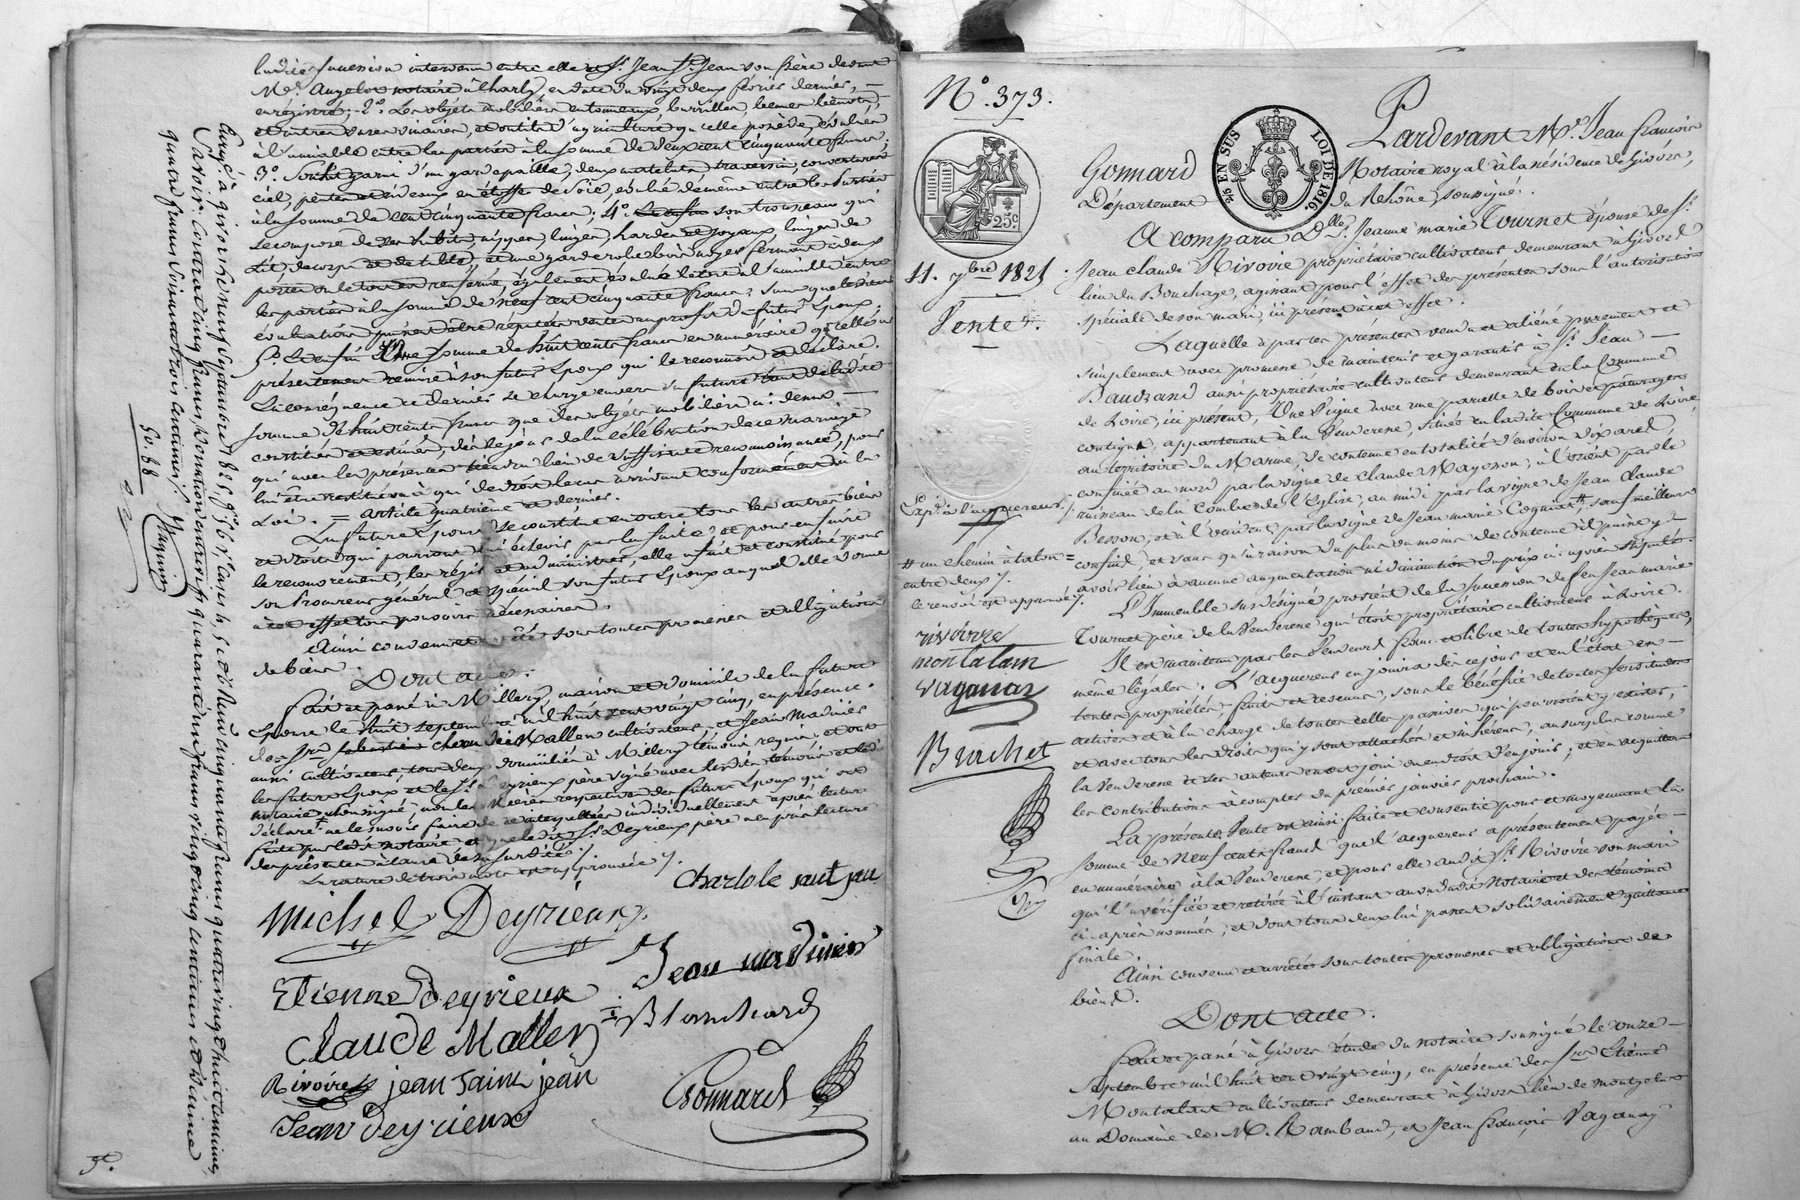 ladite succession intervenu entre elle et Sr. Jean St. Jean son frère devant
Me. notaire à Charly, en date du vingt deux février dernier, —
enregistré; 2º. Les objets mobiliers en tonneaux,
et outils d'agriculture qu'elle possède, évalués
à l'amiable entre les parties à la somme de deux cent cinquante francs;
3º. garni d'un garde paille, deux matelats, traversin, couvertures
ciel, pentes et rideaux en étoffe de soie, évalué de même entre les parties
à la somme de cent cinquante francs; 4º. son trousseau qui
se compose de ses habits, linges, hardes et joyaux, linges de
lit, de corps et de table, et une garderobe bois noyer fermant à deux
portes où le tout est renfermé, également évalué à l'amiable entre
les parties à la somme de neuf cent cinquante francs; sans que
évaluation puisse être réputée vente au profit du futur époux.
5º. Et enfin Une somme de huit cents francs en numéraire qu'elle a
présentement remise à son futur époux qui le reconnoit et déclare.
En conséquence ce dernier se charge envers sa future tant de ladite
somme de huit cents francs que des objets mobiliers ci-dessus —
constitués et estimés, dès le jour de la célébration de ce mariage
qui avec les présentes tiendra lieu de suffisante reconnoissance, pour
lui être restitués à qui de droit le cas arrivant conformément à la
Loi. = article quatrième et dernier.
La future épouse se constitue en outre tous les autres biens
et droits qui pourront lui échevoir par la suite; et pour en suivre
le recouvrement, les régir et administrer, elle a fait et constitué pour
son Procureur général et spécial son futur époux auquel elle donne
à cet effet tous pouvoirs nécessaires.
Ainsi convenu et arrêté sous toutes promesses et obligations
de biens.
Dont acte.
Fait et passé à Millery, maison et domicile de la future
épouse le huit septembre mil huit cent vingt cinq, en présence
des Srs. Mallen cultivateur, et Jean Madinier
aussi cultivateur, tous deux domiciliés à Millery témoins requis et ont
les futurs époux et le Sr. Deyrieux père signé avec lesdits témoins et led.
notaire soussigné, non les mères respectives des futurs époux qui ont
déclaré ne le savoir faire de ce interpellées individuellement après lecture
faite par ledit notaire et que ledit Sr. Deyrieux père a eu pris lecture
des présentes à cause de sa surdité.
La rature de trois mots est approuvée.
michel Deyrieux
Jean madinier
Etienne Deyrieux
Blanchard
Claude Mallen
Rivoire jean saint jean
Gonnard
Jean Deyrieux
Enregé. à givors le neuf septembre 1825
Savoir: Contrat cinq francs, Donation
50.88
Nº. 373.
25c.
11. 7bre 1825
Vente.
Expé. à l'acquéreur
# un chemin à talon =
entre deux
le renvoi est approuvé
rivoirre
montalan
vaganay
Brachet
Pardevant Me. Jean françois
25 EN SUS LOI DE 1816.
Gonnard Notaire royal à la résidence de Givors,
Département du Rhône, soussigné.
A comparu Dlle. Jeanne marie Tournet épouse de Sr.
Jean claude Rivoire propriétaire cultivateur demeurant à Givors
lieu du Bouchage, agissant pour l'effet des présentes sous l'autorisation
spéciale de son mari, ici présent à cet effet.
Laquelle a par ces présentes vendu et aliéné purement et
simplement avec promesse de maintenir et garantir à Sr. Jean —
Baudrand aussi propriétaire cultivateur demeurant en la Commune
de Loire, ici présent, Une vigne avec une parcelle de bois et pâturages
contigus, appartenant à la Venderesse, située en ladite Commune de Loire,
au territoire du Marme, de contenue en totalité d'environ dix ares,
confinée au nord par la vigne de Claude Mayosson; à l'orient par le
ruisseau de la Combe de l'Eglise; au midi par la vigne de Jean Claude
Besson; et à l'occident par la vigne de Jean marie Cognat, # sauf meilleurs
confins, et sans qu'à raison du plus ou moins de contenue il puisse y —
avoir lieu à aucune augmentation ni diminution du prix ci-après stipulé.
L'Immeuble susdésigné provient de la succession de feu Jean marie
Tournet père de la Venderesse qui étoit propriétaire cultivateur à Loire.
Il est maintenu par les Vendeurs franc et libre de toutes hypothèques,
même légales. L'acquéreur en jouira dès ce jour et en l'état en
toutes propriétés, fruits et revenus, sous le bénéfice de toutes servitudes
actives et à la charge de toutes celles passives qui pourroient y exister,
et avec tous les droits qui y sont attachés et inhérens, au surplus comme
la Venderesse et ses auteurs en ont joui ou eu droit d'en jouir; et en acquittera
les contributions à compter du premier janvier prochain.
La présente Vente est ainsi faite et consentie pour et moyennant la
somme de Neuf cents francs que l'acquéreur a présentement payée —
en numéraire à la Venderesse, et pour elle audit Sr. Rivoire son mari
qui l'a vérifiée et retirée à l'instant au vu dudit Notaire et des témoins
ci-après nommés, et dont tous deux lui passent solidairement quittance
finale.
Ainsi convenu et arrêté sous toutes promesses et obligations de
biens.
Dont acte.
Fait et passé à Givors étude du notaire soussigné le onze —
septembre mil huit cent vingt cinq, en présence des Srs. Etienne
Montalant cultivateur demeurant à Givors lieu de montgelas
au Domaine de M. Rambaud, et Jean françois Vaganay